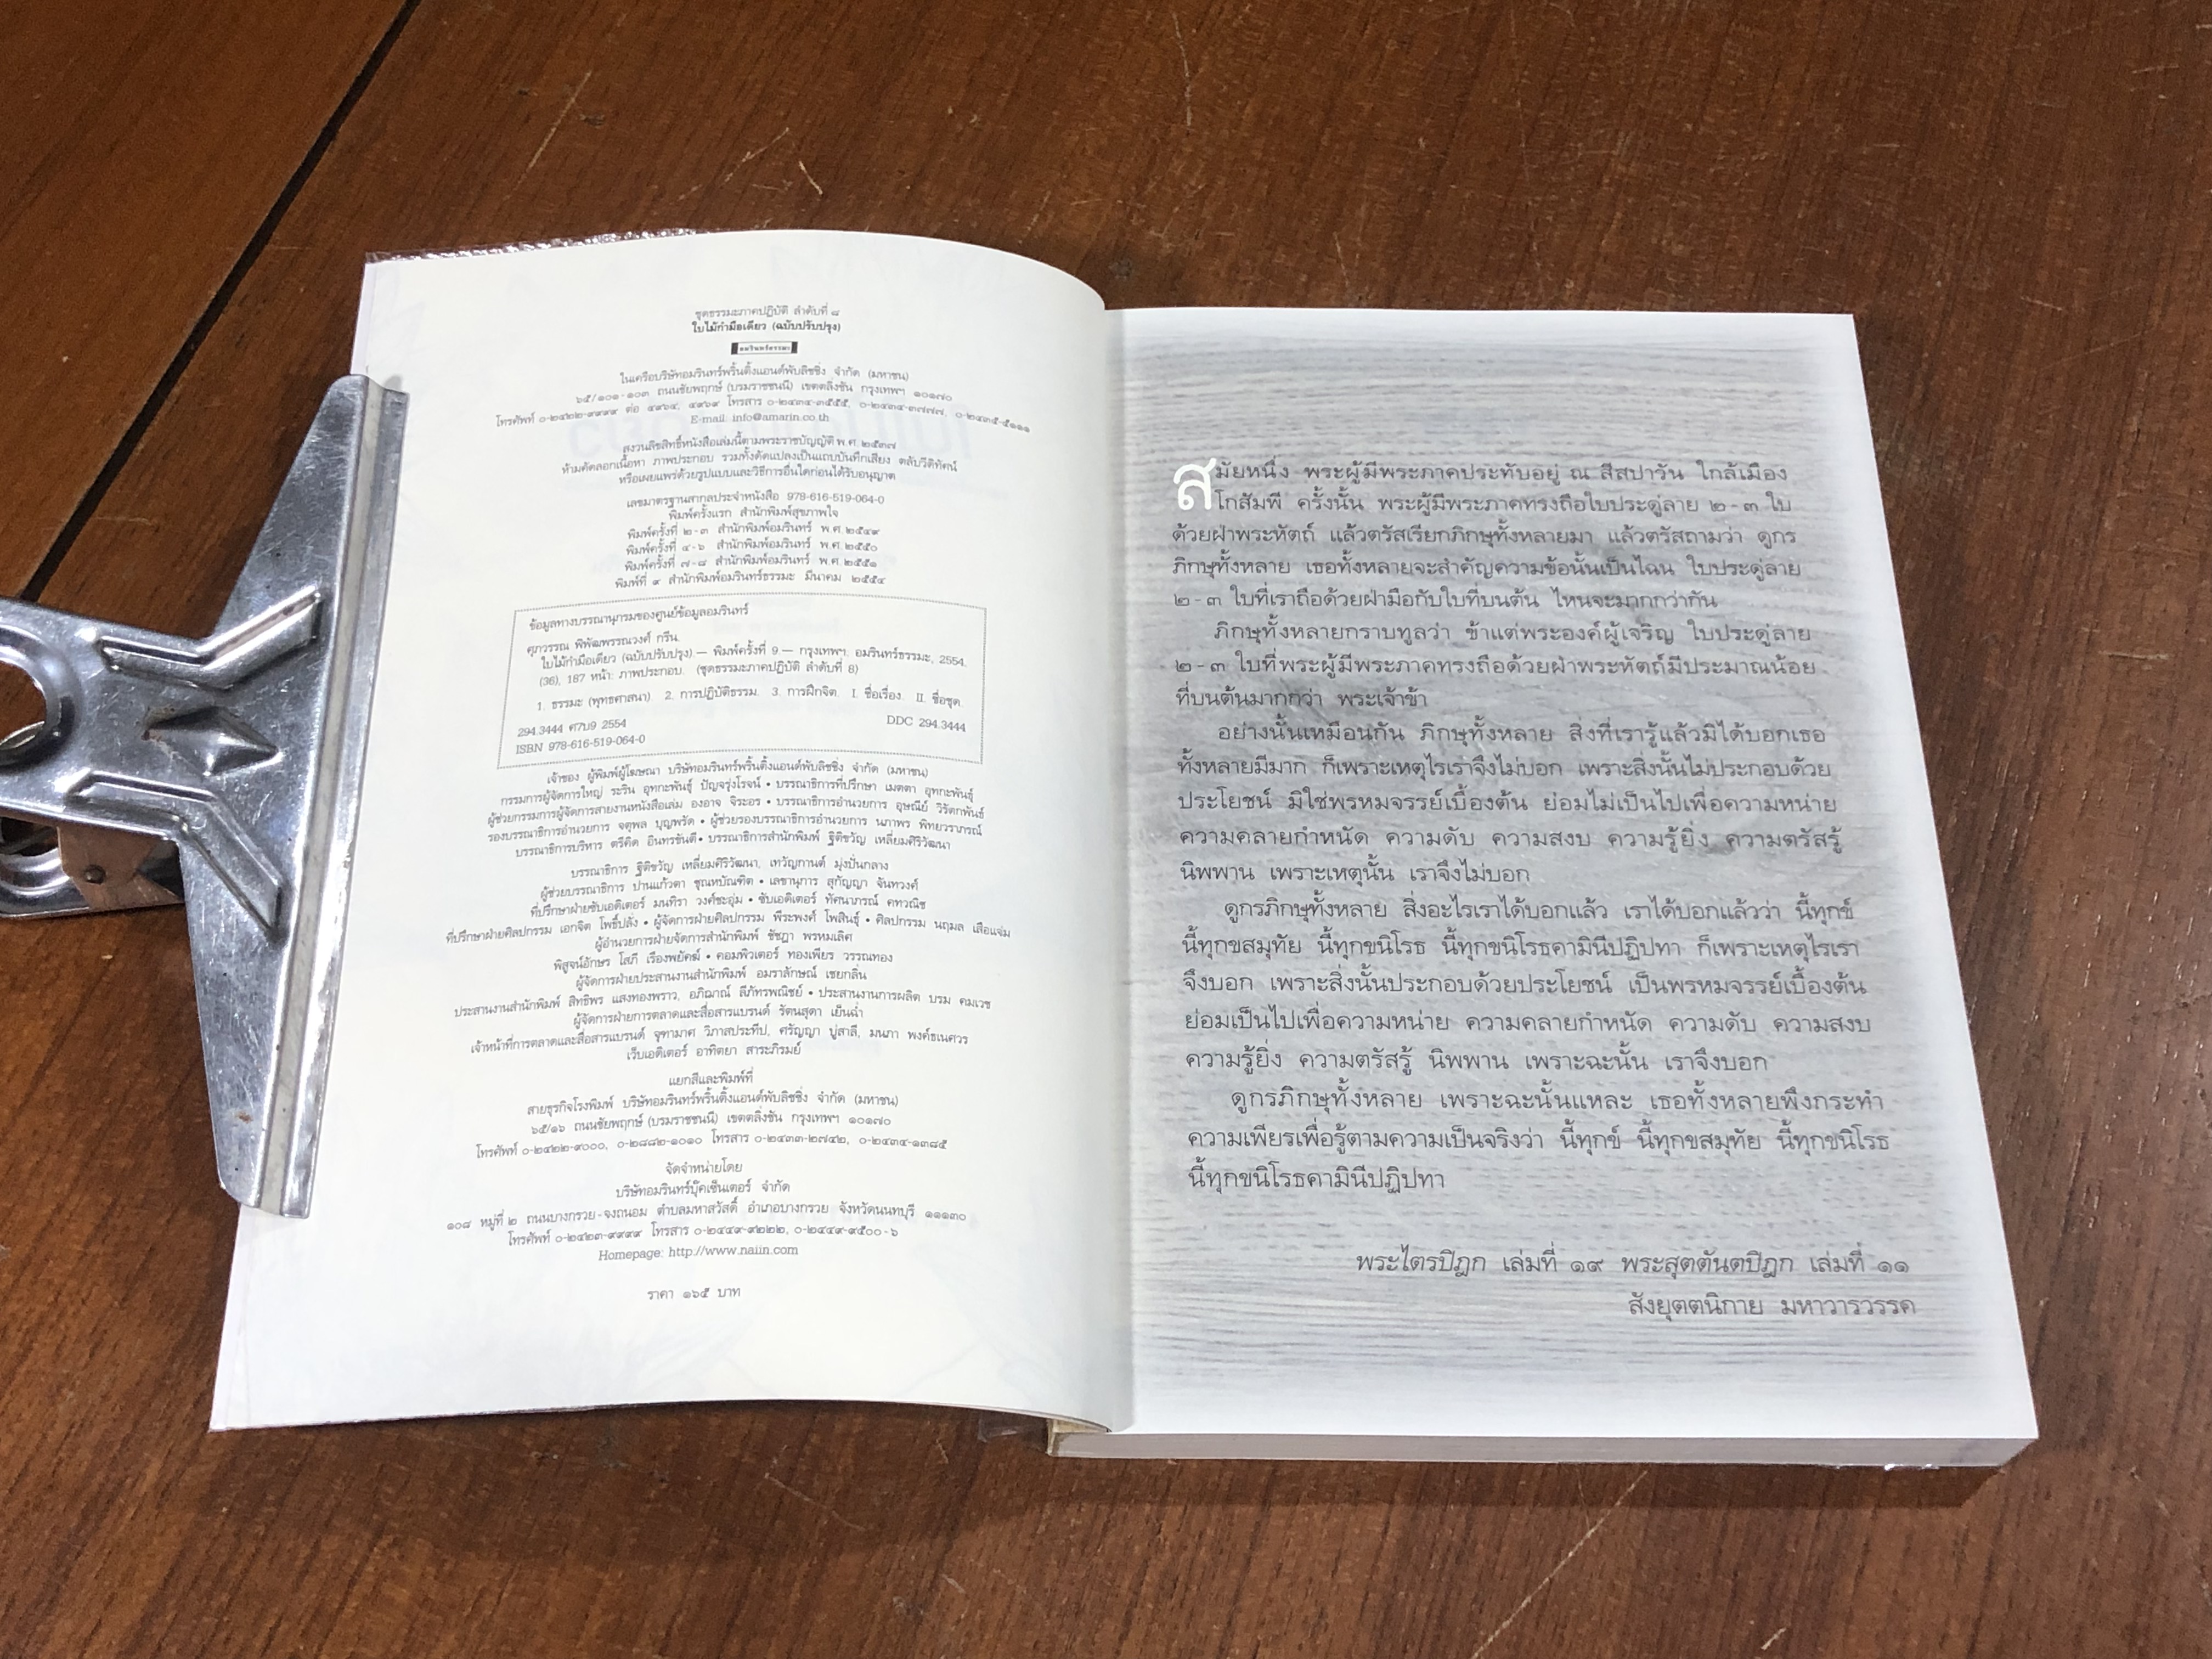 ชุดธรรมะภาคปฏิบัติ ลำดับที่ ๘
ใบไม้กำมือเดียว (ฉบับปรับปรุง)
อมรินทร์ธรรมะ
ในเครือบริษัทอมรินทร์พริ้นติ้งแอนด์พับลิชชิ่ง จำกัด (มหาชน)
๖๕/๑๐๑-๑๐๓ ถนนชัยพฤกษ์ (บรมราชชนนี) เขตตลิ่งชัน กรุงเทพฯ ๑๐๑๗๐
โทรศัพท์ ๐-๒๔๒๒-๙๙๙๙ ต่อ ๔๙๖๔, ๔๙๖๙ โทรสาร ๐-๒๔๓๔-๓๕๕๕, ๐-๒๔๓๔-๓๗๗๗, ๐-๒๔๓๕-๕๑๑๑
E-mail: info@amarin.co.th
สงวนลิขสิทธิ์หนังสือเล่มนี้ตามพระราชบัญญัติ พ.ศ. ๒๕๓๗
ห้ามคัดลอกเนื้อหา ภาพประกอบ รวมทั้งดัดแปลงเป็นแถบบันทึกเสียง ตลับวีดิทัศน์
หรือเผยแพร่ด้วยรูปแบบและวิธีการอื่นใดก่อนได้รับอนุญาต
เลขมาตรฐานสากลประจำหนังสือ 978-616-519-064-0
พิมพ์ครั้งแรก สำนักพิมพ์สุขภาพใจ
พิมพ์ครั้งที่ ๒-๓ สำนักพิมพ์อมรินทร์ พ.ศ. ๒๕๔๙
พิมพ์ครั้งที่ ๔-๖ สำนักพิมพ์อมรินทร์ พ.ศ. ๒๕๕๐
พิมพ์ครั้งที่ ๗-๘ สำนักพิมพ์อมรินทร์ พ.ศ. ๒๕๕๑
พิมพ์ที่ ๙ สำนักพิมพ์อมรินทร์ธรรมะ มีนาคม ๒๕๕๔
ข้อมูลทางบรรณานุกรมของศูนย์ข้อมูลอมรินทร์
ศุภวรรณ พิพัฒพรรณวงศ์ กรีน.
ใบไม้กำมือเดียว (ฉบับปรับปรุง).— พิมพ์ครั้งที่ 9.— กรุงเทพฯ: อมรินทร์ธรรมะ, 2554.
(36), 187 หน้า: ภาพประกอบ. (ชุดธรรมะภาคปฏิบัติ ลำดับที่ 8)
1. ธรรมะ (พุทธศาสนา) 2. การปฏิบัติธรรม. 3. การฝึกจิต. I. ชื่อเรื่อง. II. ชื่อชุด.
294.3444 ศ7บ9 2554 DDC 294.3444
ISBN 978-616-519-064-0
เจ้าของ ผู้พิมพ์ผู้โฆษณา บริษัทอมรินทร์พริ้นติ้งแอนด์พับลิชชิ่ง จำกัด (มหาชน)
กรรมการผู้จัดการใหญ่ ระริน อุทกะพันธุ์ ปัญจรุ่งโรจน์ • บรรณาธิการที่ปรึกษา เมตตา อุทกะพันธุ์
ผู้ช่วยกรรมการผู้จัดการสายงานหนังสือเล่ม องอาจ จิระอร • บรรณาธิการอำนวยการ อุษณีย์ วิรัตกพันธ์
รองบรรณาธิการอำนวยการ จตุพล บุญพรัด • ผู้ช่วยรองบรรณาธิการอำนวยการ นภาพร พิทยวราภรณ์
บรรณาธิการบริหาร ตรีคิด อินทรขันตี • บรรณาธิการสำนักพิมพ์ ฐิติขวัญ เหลี่ยมศิริวัฒนา
บรรณาธิการ ฐิติขวัญ เหลี่ยมศิริวัฒนา, เทวัญกานต์ มุ่งปั่นกลาง
ผู้ช่วยบรรณาธิการ ปานแก้วตา ชุณหบัณฑิต • เลขานุการ สุกัญญา จันทวงศ์
ที่ปรึกษาฝ่ายซับเอดิเตอร์ มนทิรา วงศ์ชะอุ่ม • ซับเอดิเตอร์ ทัศนาภรณ์ คทวณิช
ที่ปรึกษาฝ่ายศิลปกรรม เอกจิต โพธิ์ปลั่ง • ผู้จัดการฝ่ายศิลปกรรม พีระพงศ์ โพสินธุ์ • ศิลปกรรม นฤมล เสือแจ่ม
ผู้อำนวยการฝ่ายจัดการสำนักพิมพ์ ชัชฎา พรหมเลิศ
พิสูจน์อักษร โสภี เรืองพยัคฆ์ • คอมพิวเตอร์ ทองเพียร วรรณทอง
ผู้จัดการฝ่ายประสานงานสำนักพิมพ์ อมราลักษณ์ เชยกลิ่น
ประสานงานสำนักพิมพ์ สิทธิพร แสงทองพราว, อภิฌาณ์ ลีภัทรพณิชย์ • ประสานงานการผลิต บรม คมเวช
ผู้จัดการฝ่ายการตลาดและสื่อสารแบรนด์ รัตนสุดา เย็นฉ่ำ
เจ้าหน้าที่การตลาดและสื่อสารแบรนด์ จุฑามาศ วิภาสประทีป, ศรัญญา ปูสาลี, มนภา พงศ์ธเนศวร
เว็บเอดิเตอร์ อาทิตยา สาระภิรมย์
แยกสีและพิมพ์ที่
สายธุรกิจโรงพิมพ์ บริษัทอมรินทร์พริ้นติ้งแอนด์พับลิชชิ่ง จำกัด (มหาชน)
๖๕/๑๖ ถนนชัยพฤกษ์ (บรมราชชนนี) เขตตลิ่งชัน กรุงเทพฯ ๑๐๑๗๐
โทรศัพท์ ๐-๒๔๒๒-๙๐๐๐, ๐-๒๘๘๒-๑๐๑๐ โทรสาร ๐-๒๔๓๓-๒๗๔๒, ๐-๒๔๓๔-๑๓๘๕
จัดจำหน่ายโดย
บริษัทอมรินทร์บุ๊คเซ็นเตอร์ จำกัด
๑๐๘ หมู่ที่ ๒ ถนนบางกรวย-จงถนอม ตำบลมหาสวัสดิ์ อำเภอบางกรวย จังหวัดนนทบุรี ๑๑๑๓๐
โทรศัพท์ ๐-๒๔๒๓-๙๙๙๙ โทรสาร ๐-๒๔๔๙-๙๒๒๒, ๐-๒๔๔๙-๙๕๐๐-๖
Homepage: http://www.naiin.com
ราคา ๑๖๕ บาท
สมัยหนึ่ง พระผู้มีพระภาคประทับอยู่ ณ สีสปาวัน ใกล้เมือง
โกสัมพี ครั้งนั้น พระผู้มีพระภาคทรงถือใบประดู่ลาย ๒-๓ ใบ
ด้วยฝ่าพระหัตถ์ แล้วตรัสเรียกภิกษุทั้งหลายมา แล้วตรัสถามว่า ดูกร
ภิกษุทั้งหลาย เธอทั้งหลายจะสำคัญความข้อนั้นเป็นไฉน ใบประดู่ลาย
๒-๓ ใบที่เราถือด้วยฝ่ามือกับใบที่บนต้น ไหนจะมากกว่ากัน
ภิกษุทั้งหลายกราบทูลว่า ข้าแต่พระองค์ผู้เจริญ ใบประดู่ลาย
๒-๓ ใบที่พระผู้มีพระภาคทรงถือด้วยฝ่าพระหัตถ์มีประมาณน้อย
ที่บนต้นมากกว่า พระเจ้าข้า
อย่างนั้นเหมือนกัน ภิกษุทั้งหลาย สิ่งที่เรารู้แล้วมิได้บอกเธอ
ทั้งหลายมีมาก ก็เพราะเหตุไรเราจึงไม่บอก เพราะสิ่งนั้นไม่ประกอบด้วย
ประโยชน์ มิใช่พรหมจรรย์เบื้องต้น ย่อมไม่เป็นไปเพื่อความหน่าย
ความคลายกำหนัด ความดับ ความสงบ ความรู้ยิ่ง ความตรัสรู้
นิพพาน เพราะเหตุนั้น เราจึงไม่บอก
ดูกรภิกษุทั้งหลาย สิ่งอะไรเราได้บอกแล้ว เราได้บอกแล้วว่า นี้ทุกข์
นี้ทุกขสมุทัย นี้ทุกขนิโรธ นี้ทุกขนิโรธคามินีปฏิปทา ก็เพราะเหตุไรเรา
จึงบอก เพราะสิ่งนั้นประกอบด้วยประโยชน์ เป็นพรหมจรรย์เบื้องต้น
ย่อมเป็นไปเพื่อความหน่าย ความคลายกำหนัด ความดับ ความสงบ
ความรู้ยิ่ง ความตรัสรู้ นิพพาน เพราะฉะนั้น เราจึงบอก
ดูกรภิกษุทั้งหลาย เพราะฉะนั้นแหละ เธอทั้งหลายพึงกระทำ
ความเพียรเพื่อรู้ตามความเป็นจริงว่า นี้ทุกข์ นี้ทุกขสมุทัย นี้ทุกขนิโรธ
นี้ทุกขนิโรธคามินีปฏิปทา
พระไตรปิฎก เล่มที่ ๑๙ พระสุตตันตปิฎก เล่มที่ ๑๑
สังยุตตนิกาย มหาวารวรรค